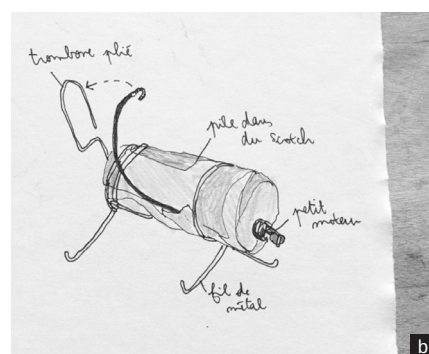 trombone plié
pile dans
du scotch
petit
moteur
fil de
métal
b